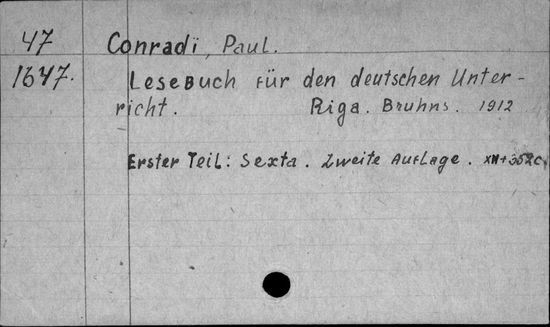 47 Conradi, Paul.
1647. Lesebuch für den deutschen Unter-
richt. Riga. Bruhns. 1912
Erster Teil: Sexta. Zweite Auflage.